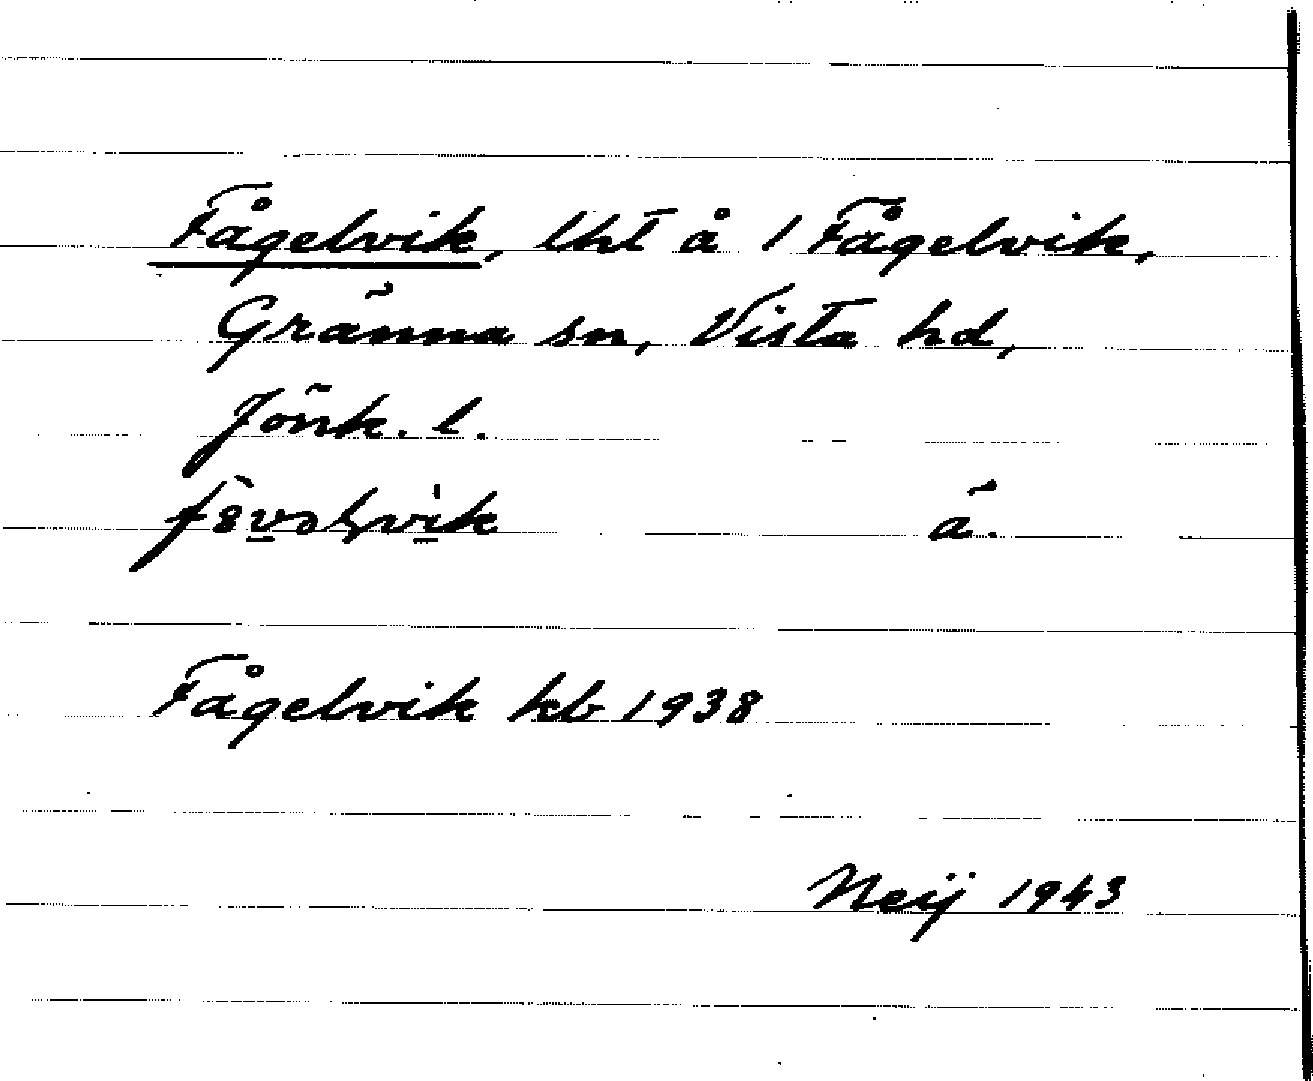 Fågelvik, lht å 1 Fågelvik,
Gränna sn, Vista hd,
Jönk. l.
ä.
Fågelvik kb 1938
Neij 1943